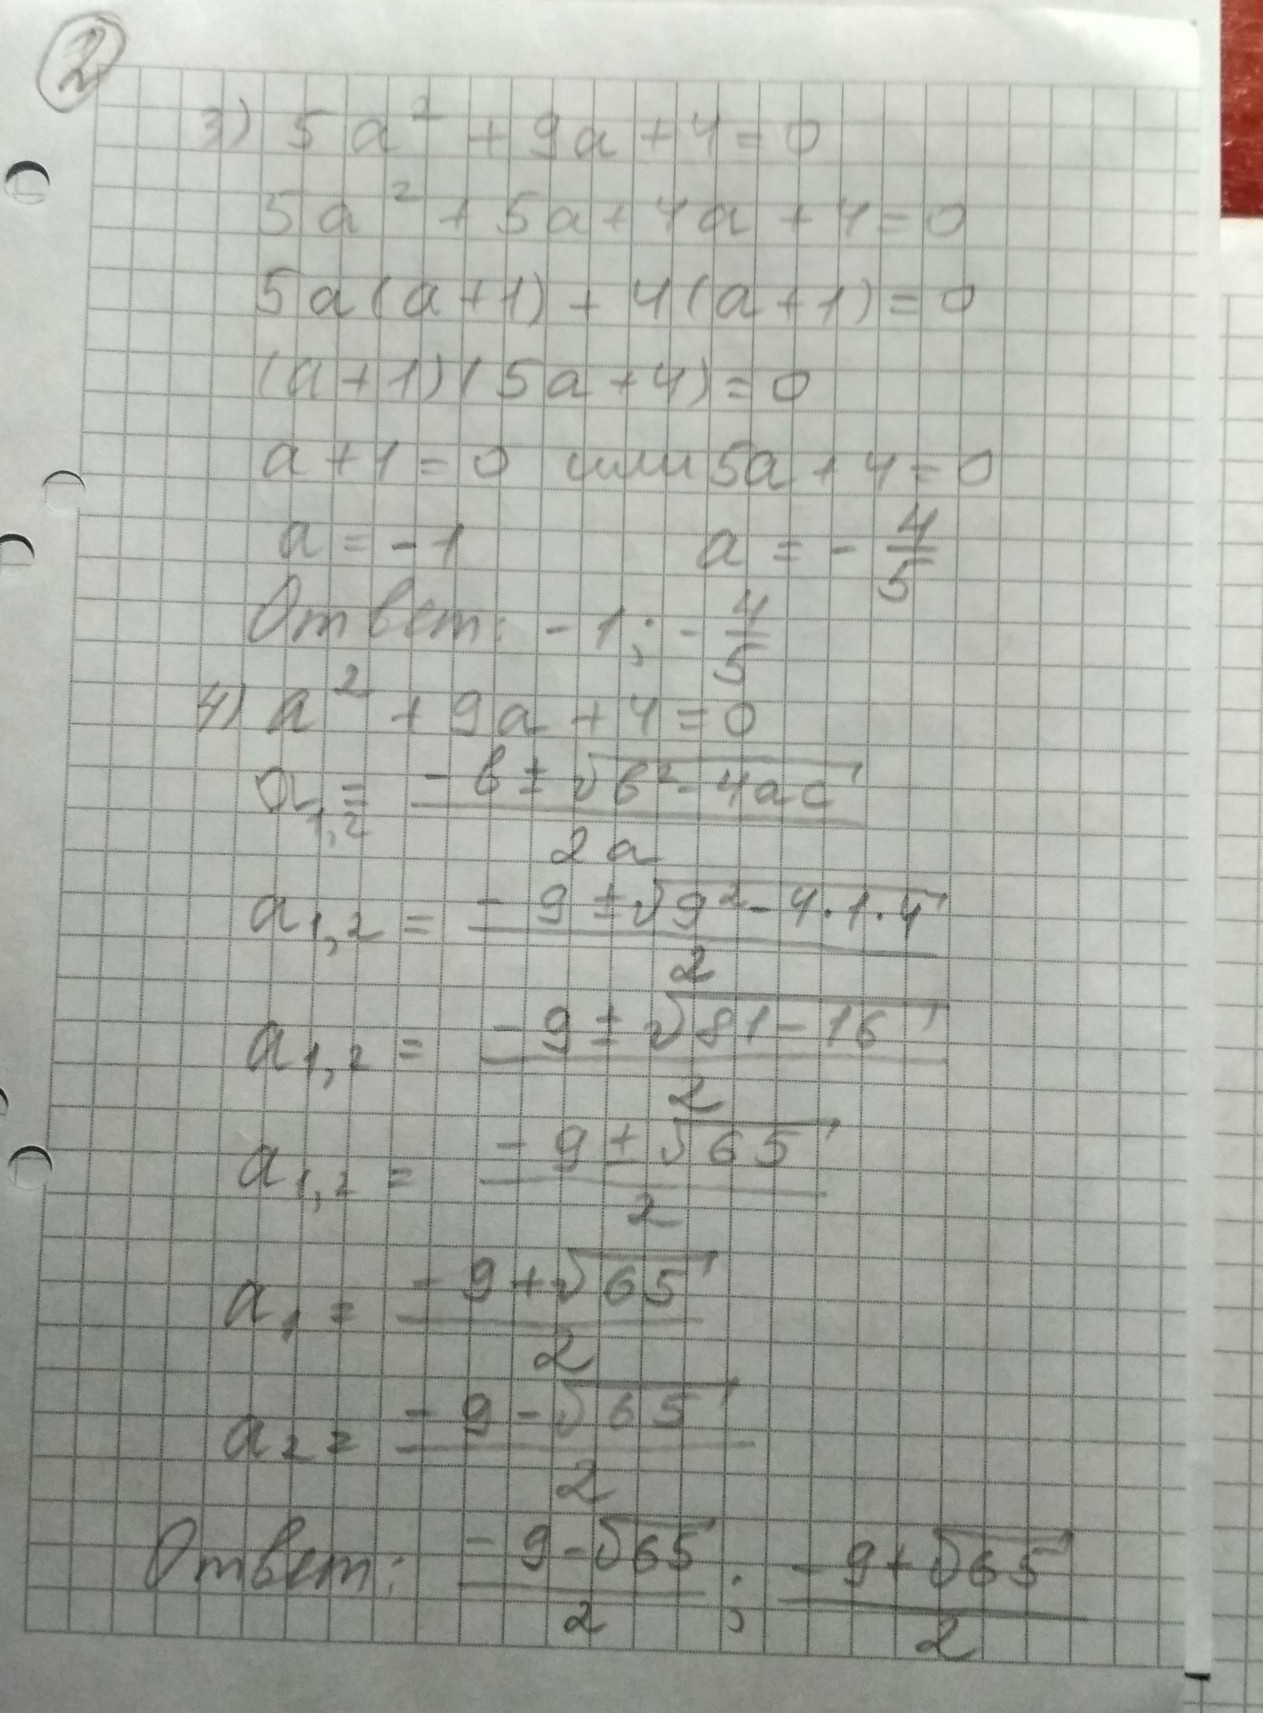 2
3) 5a² + 9a + 4 = 0
5a² + 5a + 4a + 4 = 0
5a(a+1) + 4(a+1) = 0
(a+1)(5a+4) = 0
a+1=0 или 5a+4=0
a = -1 a = -4/5
Ответ: -1; -4/5
4) a² + 9a + 4 = 0
a₁,₂ = (-в ± √(в² - 4ac))/(2a)
a₁,₂ = (-9 ± √(9² - 4·1·4))/2
a₁,₂ = (-9 ± √(81 - 16))/2
a₁,₂ = (-9 ± √65)/2
a₁ = (-9 + √65)/2
a₂ = (-9 - √65)/2
Ответ: (-9 - √65)/2 ; (-9 + √65)/2